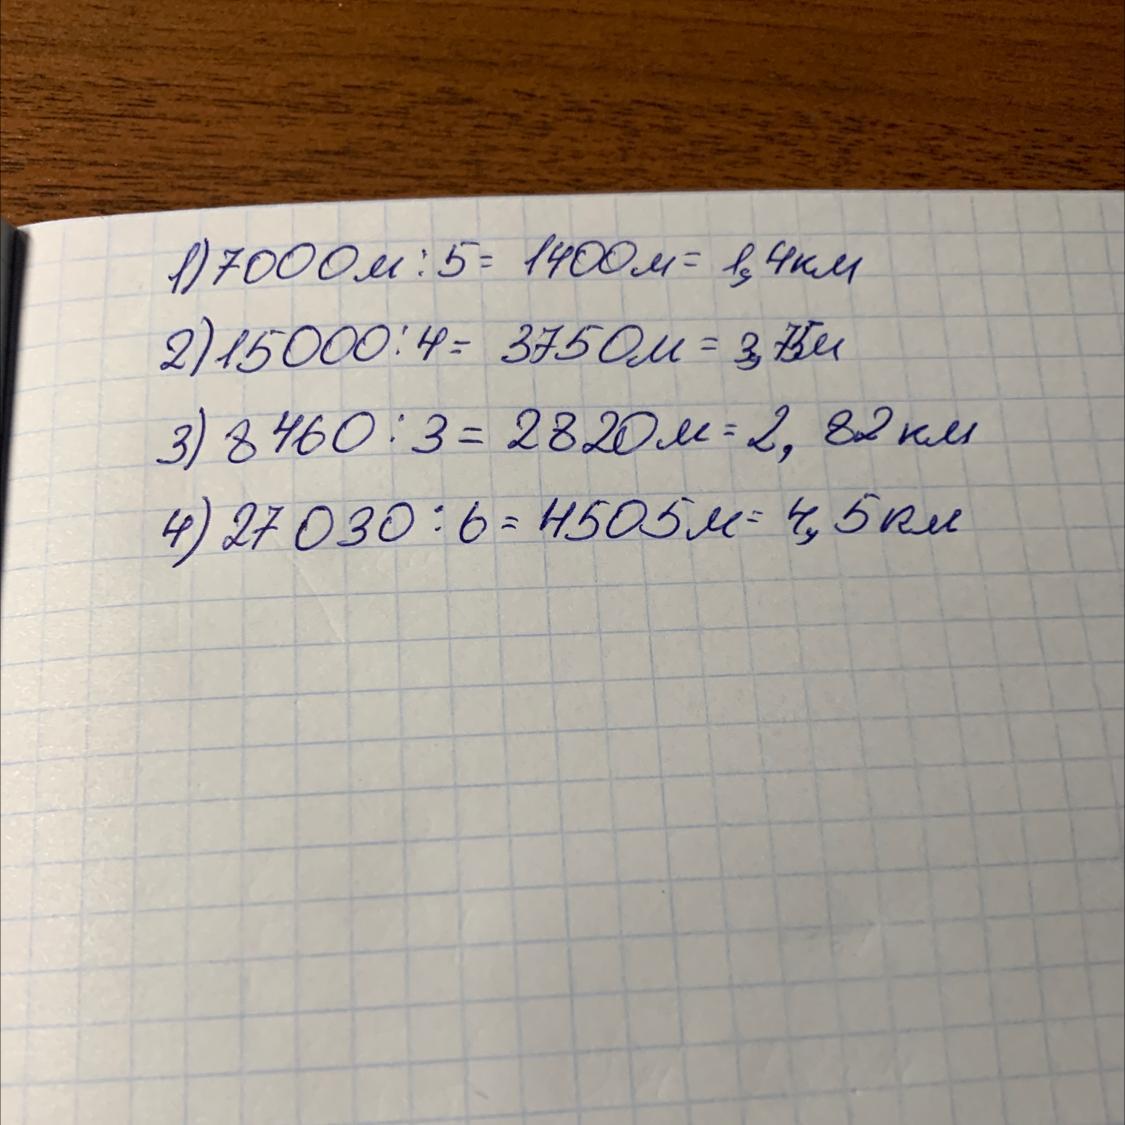 1) 7000м : 5 = 1400м = 1,4км
2) 15000 : 4 = 3750м = 3,75м
3) 8460 : 3 = 2820м = 2,82км
4) 27030 : 6 = 4505м = 4,5км